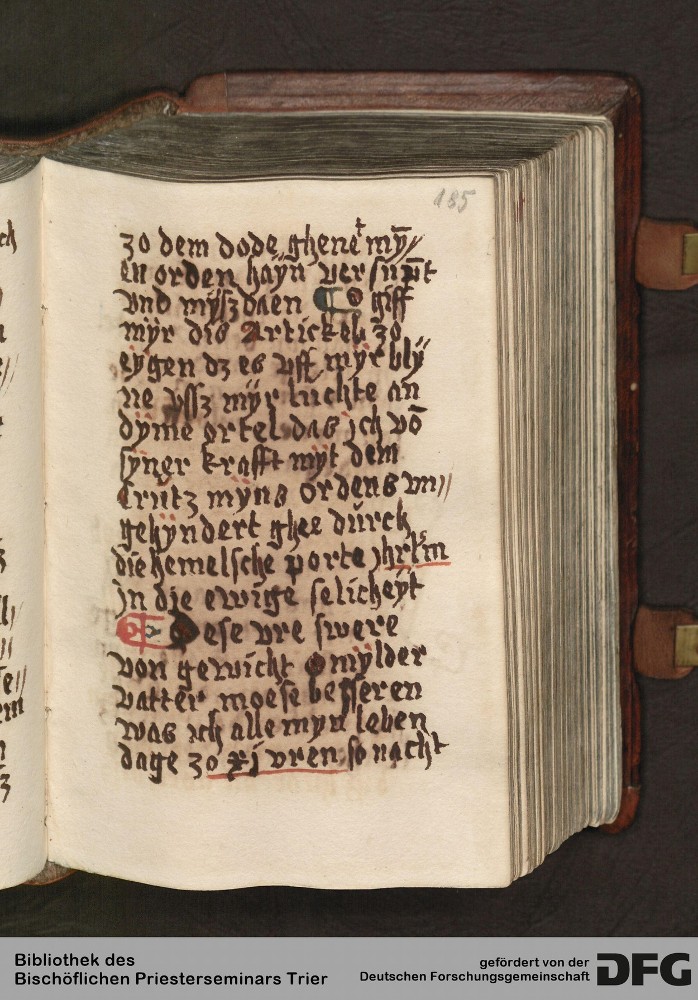 185
zo dem dode ghenet mȳ//
en orden hayn versūpt
vnd mÿſz daen O giff
mÿr dis Artickel zo
eÿgen dz es vff mÿr blÿ
ne vſſz mÿr luchte an
dÿme ortel das jch vō
ſÿner krafft mÿt dem
Crútz mÿns ordens vn//
gehÿndert ghee dúrch
die hemelſche porte jhrlm
jn die ewige ſelicheÿt
Deſe vre ſwere
von gewicht O mÿlder
vatter moeſe beſſeren
was ich alle myn leben
dage zo xj vren ſo nacht
Bibliothek des
Bischöflichen Priesterseminars Trier
gefördert von der
Deutschen Forschungsgemeinschaft
DFG